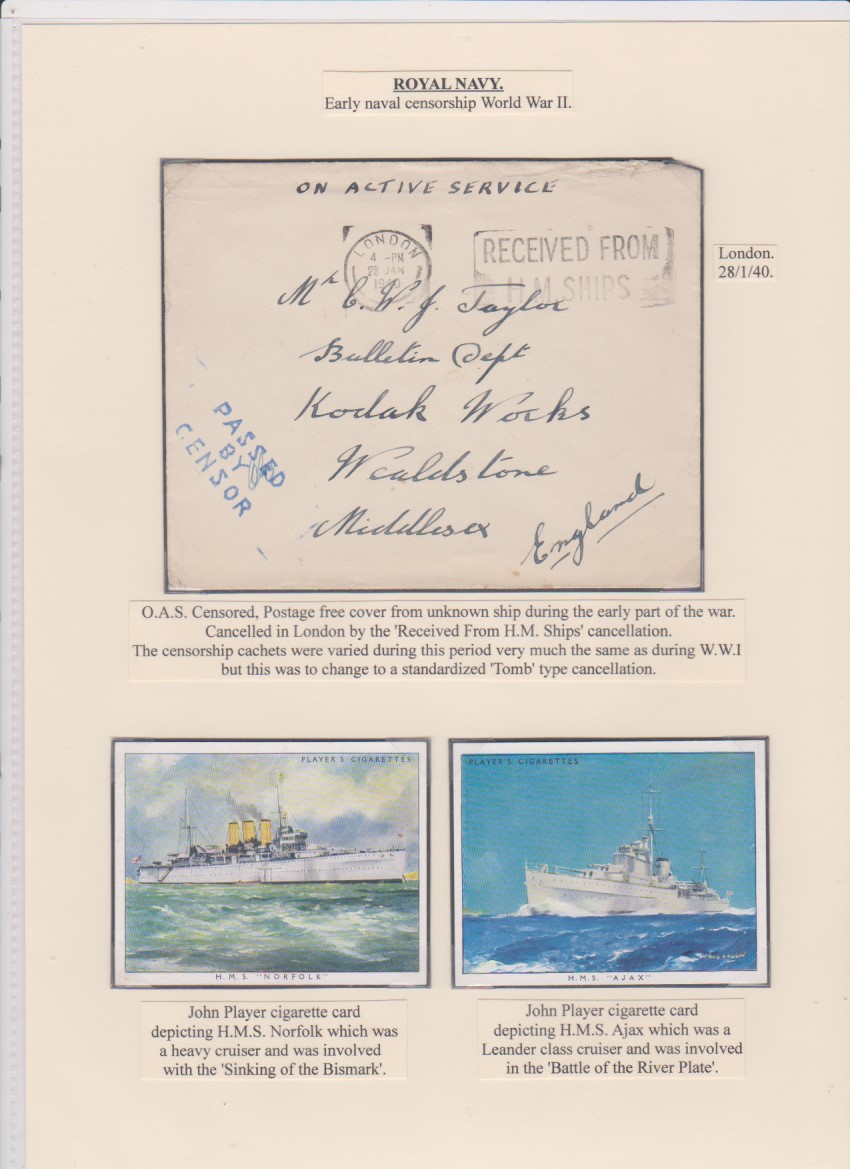 ROYAL NAVY.
Early naval censorship World War II.
ON ACTIVE SERVICE
LONDON
4 -PM
28 JAN
1940
RECEIVED FROM
H.M. SHIPS
London.
28/1/40.
Mr C. W. J. Taylor
Bulletin Dept
Kodak Works
Wealdstone
Middlesex
England
PASSED
BY
CENSOR
O.A.S. Censored, Postage free cover from unknown ship during the early part of the war.
Cancelled in London by the 'Received From H.M. Ships' cancellation.
The censorship cachets were varied during this period very much the same as during W.W.I
but this was to change to a standardized 'Tomb' type cancellation.
PLAYER'S CIGARETTES
H.M.S. "NORFOLK"
PLAYER'S CIGARETTES
H.M.S. "AJAX"
John Player cigarette card
depicting H.M.S. Norfolk which was
a heavy cruiser and was involved
with the 'Sinking of the Bismark'.
John Player cigarette card
depicting H.M.S. Ajax which was a
Leander class cruiser and was involved
in the 'Battle of the River Plate'.